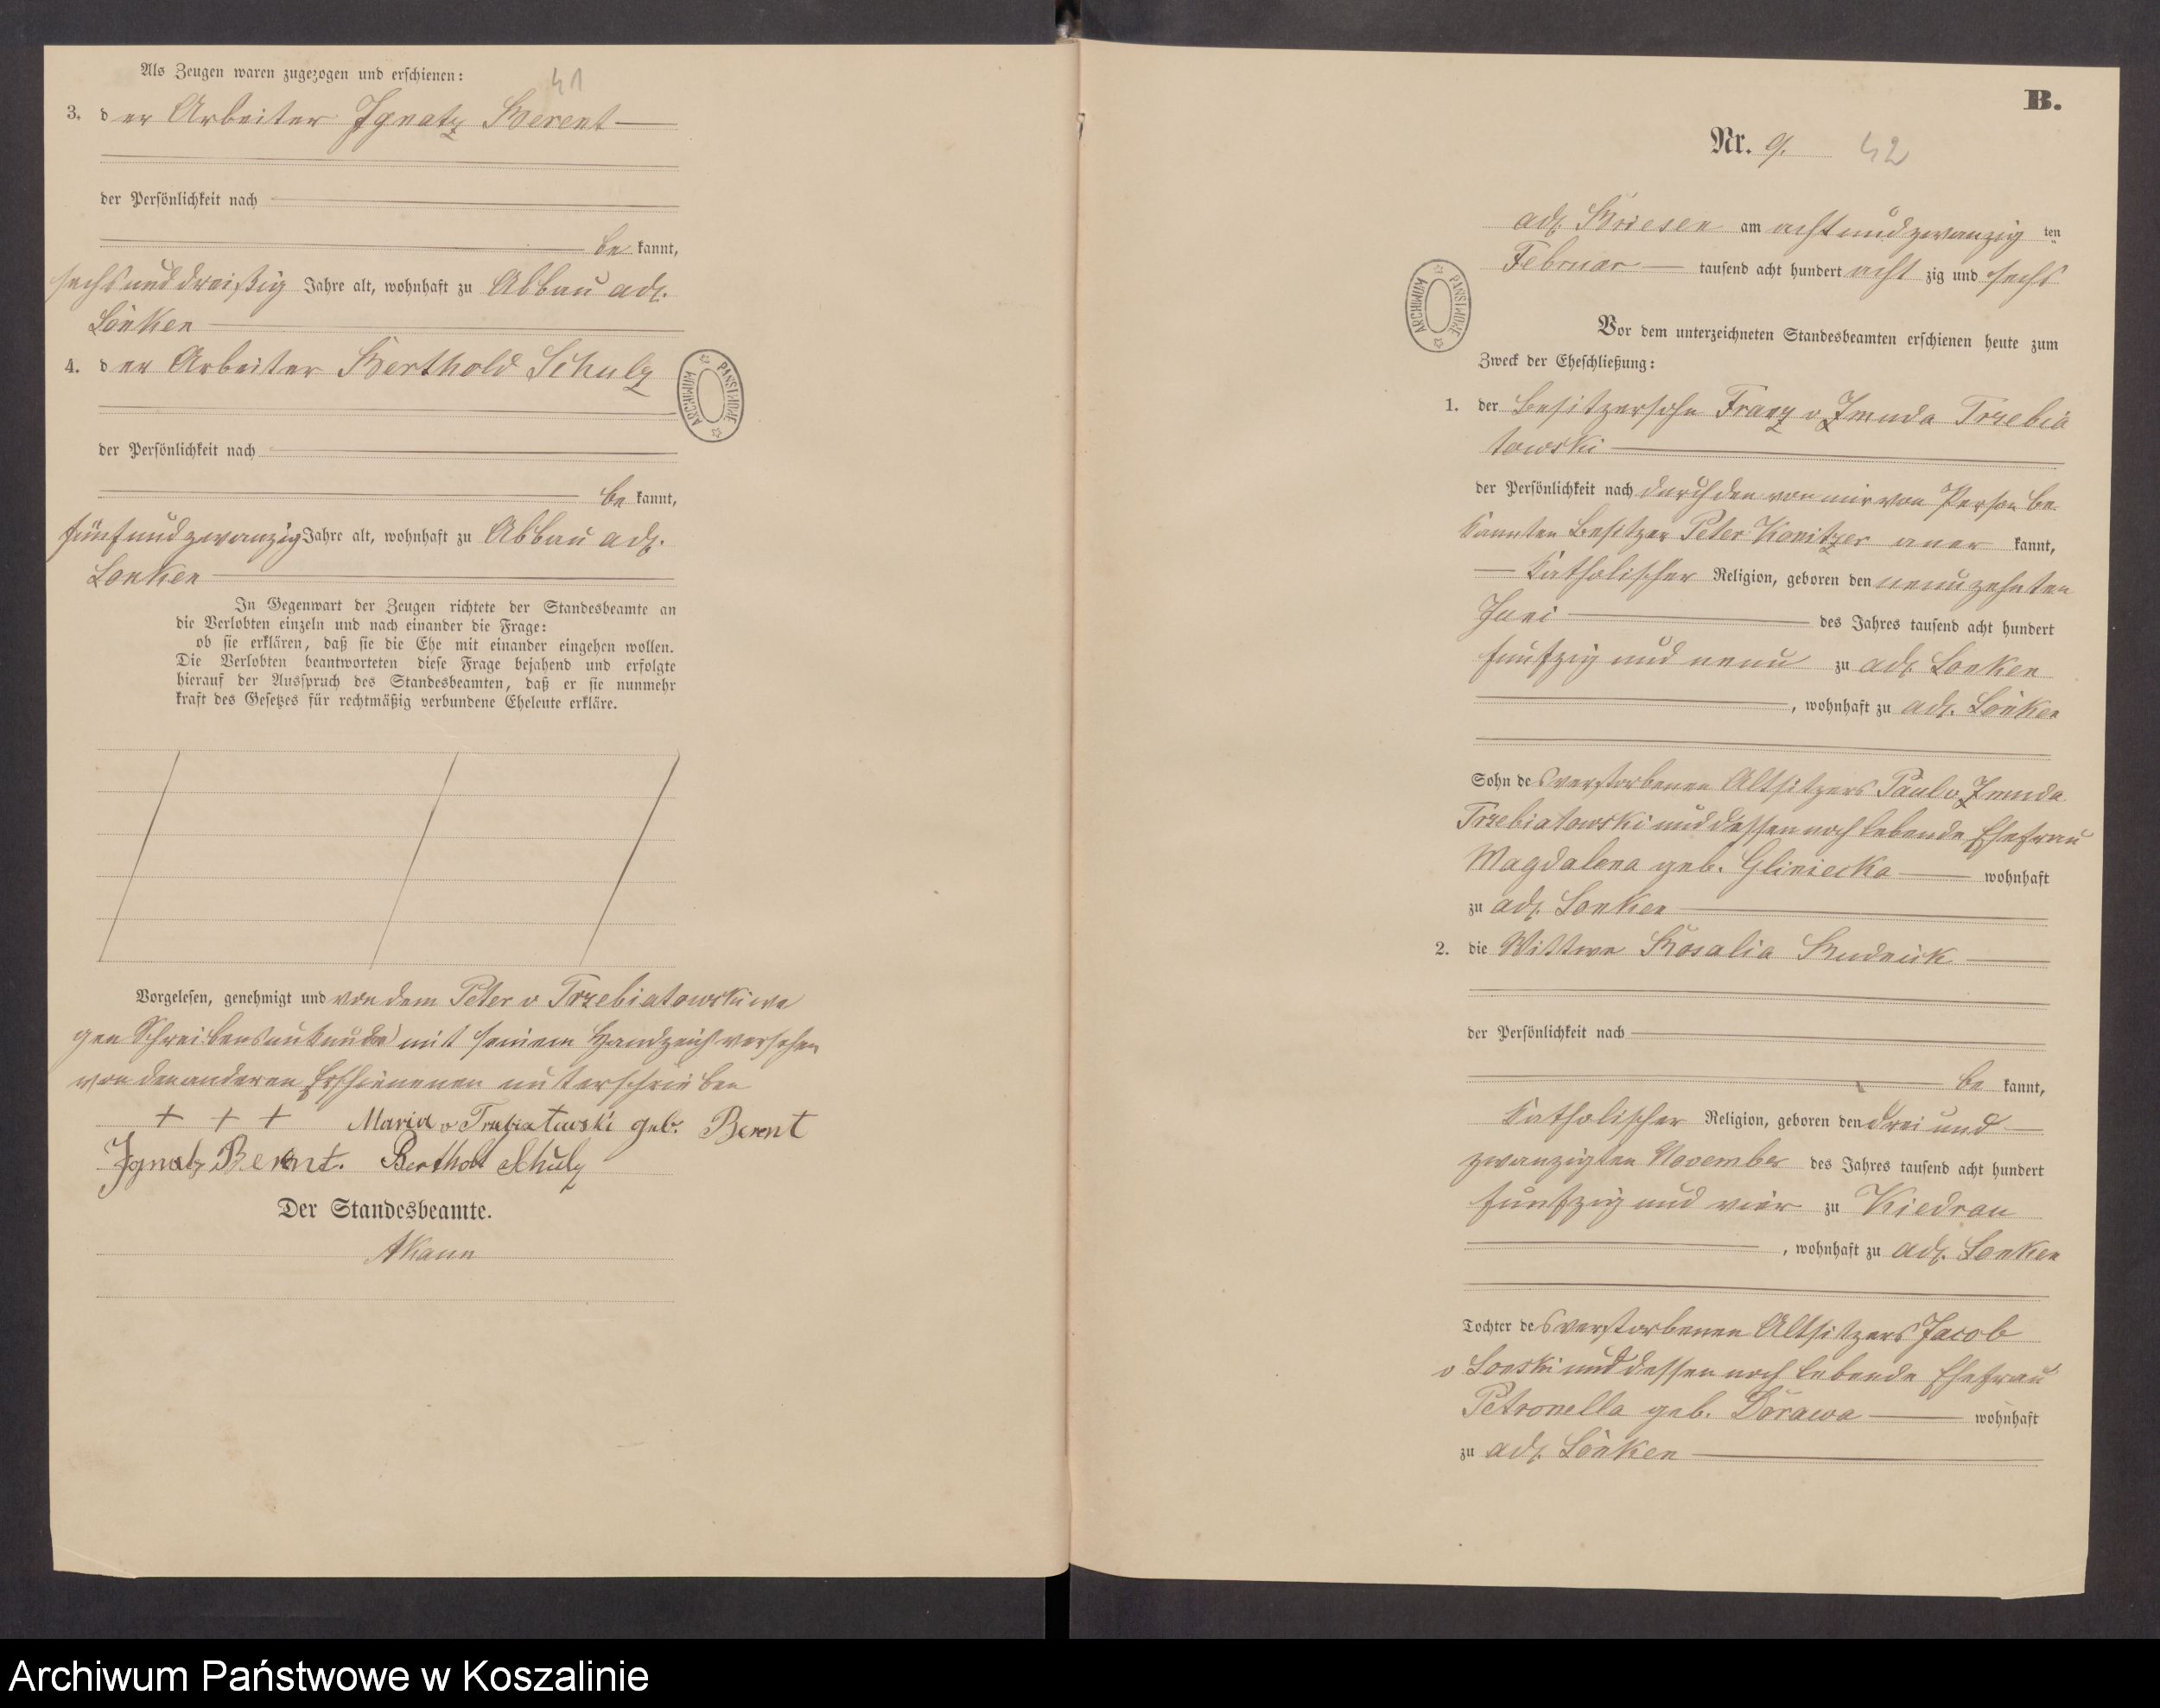 41
Als Zeugen waren zugezogen und erschienen:
3. der Arbeiter Ignatz Berent
der Persönlichkeit nach
be kannt,
sechsunddreißig Jahre alt, wohnhaft zu Abbau adl.
Lonken
4. der Arbeiter Berthold Schulz
der Persönlichkeit nach
be kannt,
fünfundzwanzig Jahre alt, wohnhaft zu Abbau adl.
Lonken
In Gegenwart der Zeugen richtete der Standesbeamte an
die Verlobten einzeln und nach einander die Frage:
ob sie erklären, daß sie die Ehe mit einander eingehen wollen.
Die Verlobten beantworteten diese Frage bejahend und erfolgte
hierauf der Ausspruch des Standesbeamten, daß er sie nunmehr
kraft des Gesetzes für rechtmäßig verbundene Eheleute erkläre.
Vorgelesen, genehmigt und von dem Peter v Trzebiatowski we
gen Schreibensunkunde mit seinem Handzeich versehen
von den anderen Erschienenen unterschrieben
+ + + Maria v Trzebiatowski geb. Berent
Ignatz Berent. Berthold Schulz
Der Standesbeamte.
AKann
ARCHIWUM PAŃSTWOWE
B.
Nr. 9. 42
adl. Briesen am achtundzwanzig ten
Februar tausend acht hundert acht zig und sechs
ARCHIWUM PAŃSTWOWE
Vor dem unterzeichneten Standesbeamten erschienen heute zum
Zweck der Eheschließung:
1. der Besitzersohn Franz v Zmuda Trzebia
towski
der Persönlichkeit nach durch den von mir von Person be
kannten Besitzer Peter Konitzer aner kannt,
katholischer Religion, geboren den neunzehnten
Juni des Jahres tausend acht hundert
fünfzig und neun zu adl. Lonken
, wohnhaft zu adl. Lonken
Sohn des verstorbenen Altsitzers Paul v Zmuda
Trzebiatowski und dessen noch lebende Ehefrau
Magdalena geb. Gliniecka wohnhaft
zu adl. Lonken
2. die Wittwe Rosalia Rudnick
der Persönlichkeit nach
be kannt,
katholischer Religion, geboren den drei und
zwanzigten November des Jahres tausend acht hundert
fünfzig und vier zu Kiedrau
, wohnhaft zu adl. Lonken
Tochter des verstorbenen Altsitzers Jacob
v Lonski und dessen noch lebende Ehefrau
Petronella geb. Dorawa wohnhaft
zu adl. Lonken
Archiwum Państwowe w Koszalinie